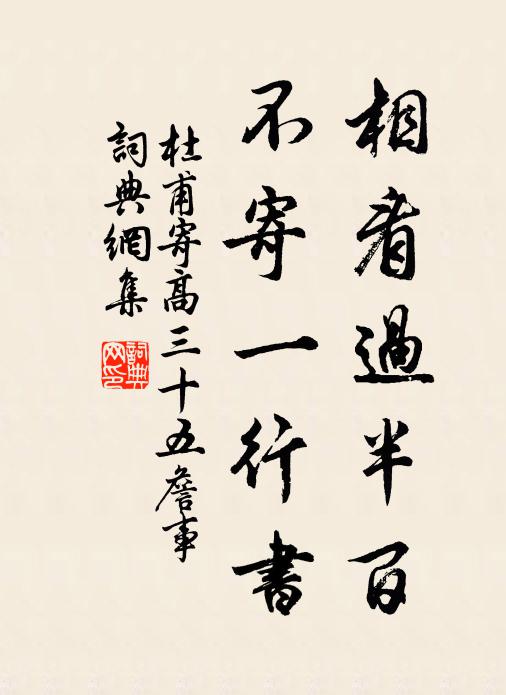 相看過半百
不寄一行書
杜甫寄高三十五詹事
詞典網集
詞典網印